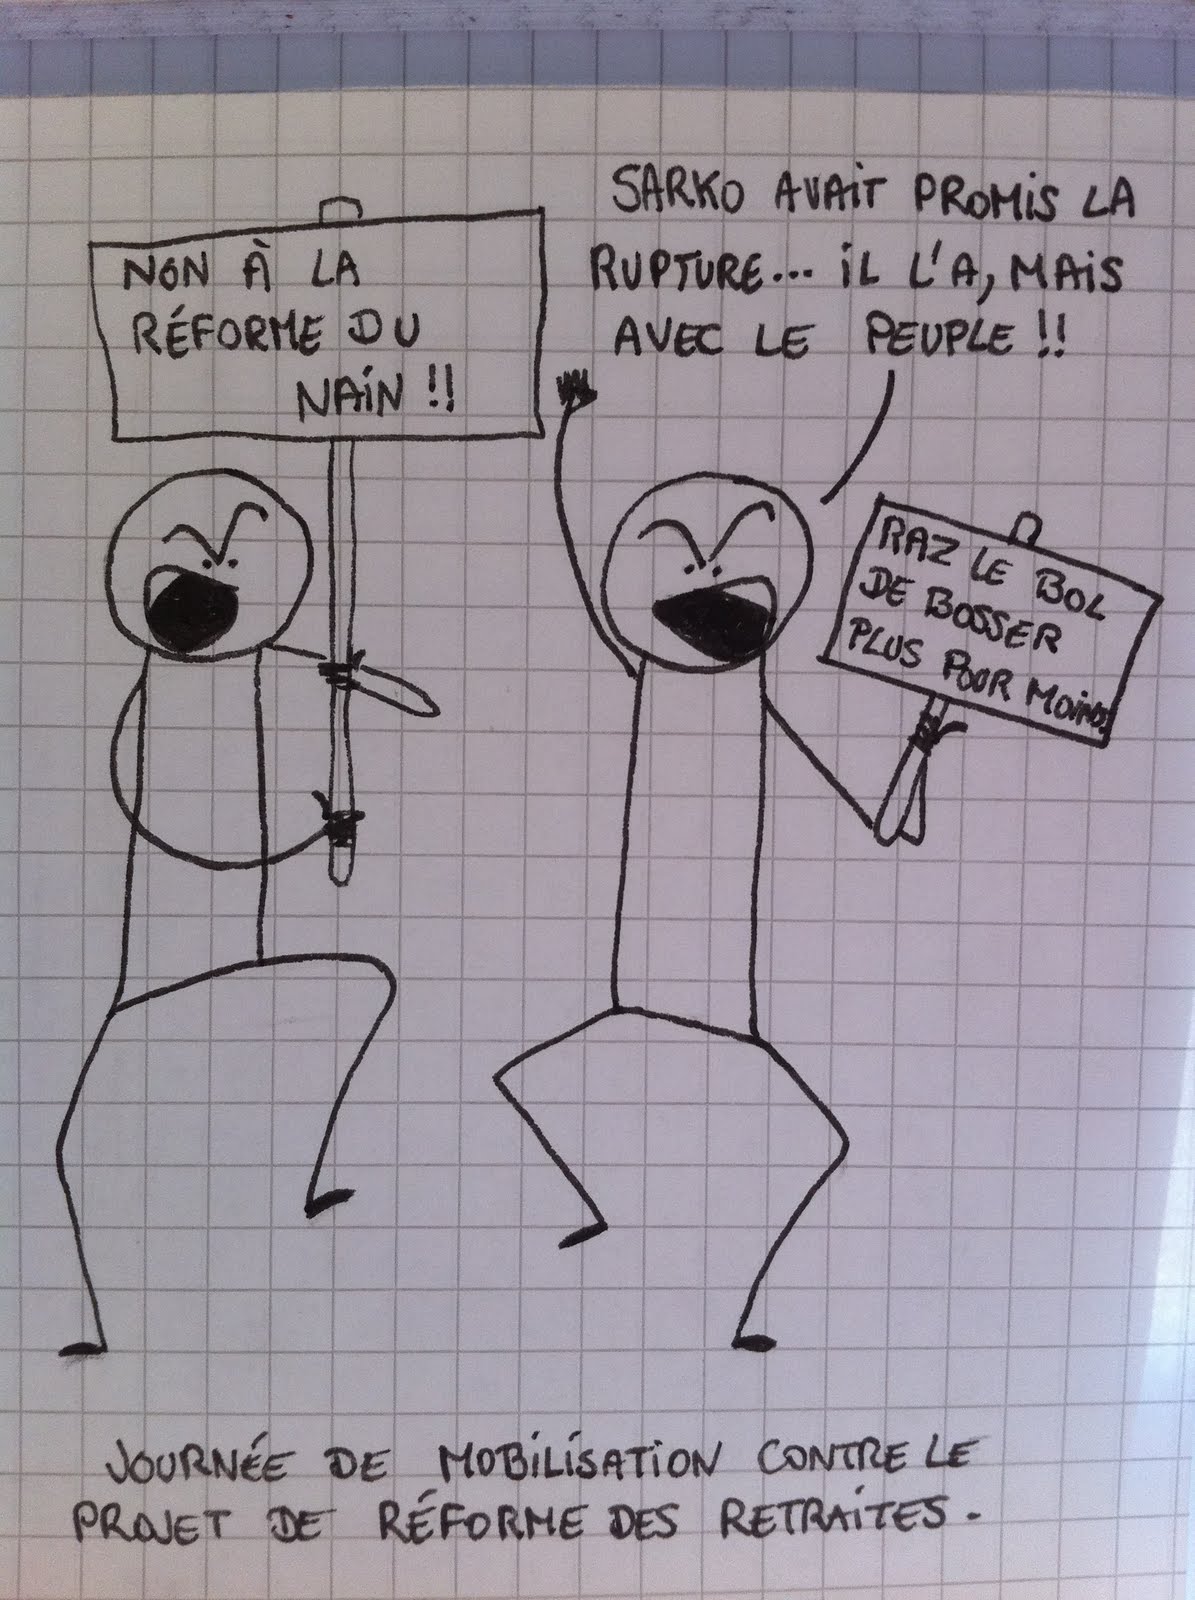 NON À LA
RÉFORME DU
NAIN !!
SARKO AVAIT PROMIS LA
RUPTURE... IL L'A, MAIS
AVEC LE PEUPLE !!
RAZ LE BOL
DE BOSSER
PLUS POUR MOINS!
JOURNÉE DE MOBILISATION CONTRE LE
PROJET DE RÉFORME DES RETRAITES.